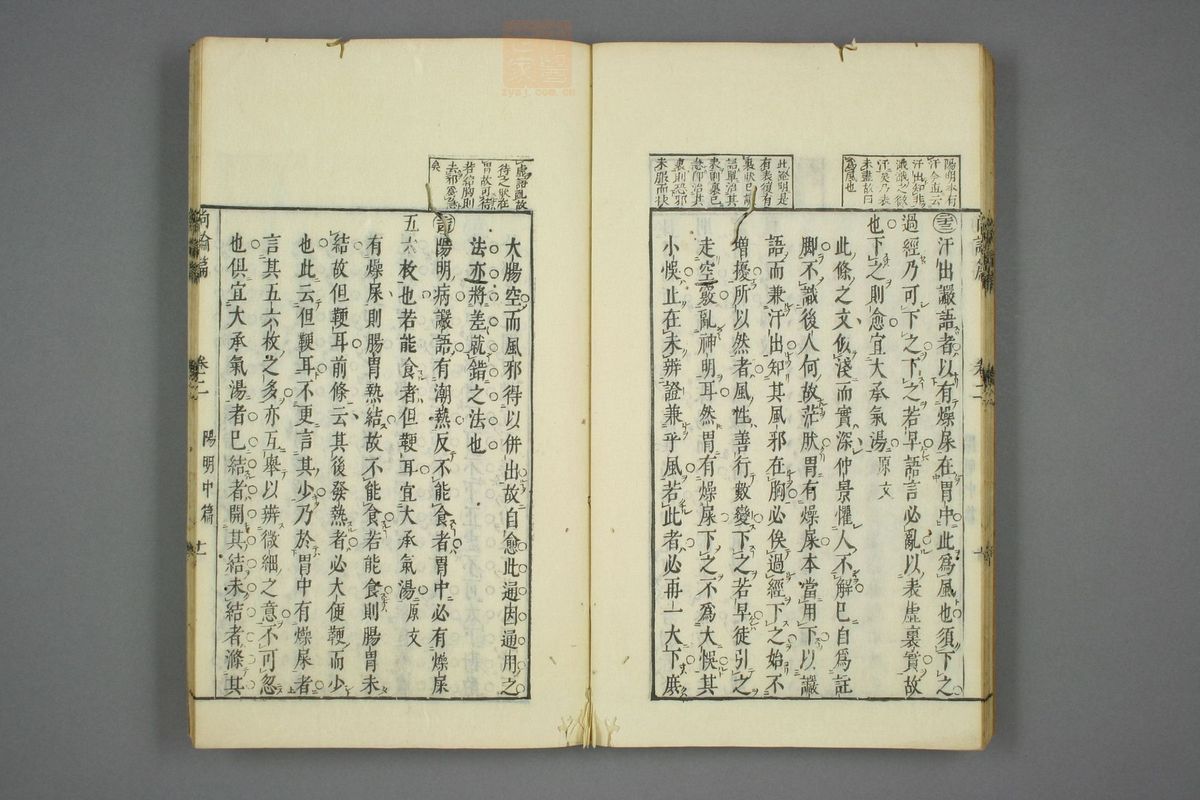 陽明本有
汗
汗出知
未盡故曰
為風也
此證明是
有表須有
裏狀已
語單治其
表則裏已
急許治其
裏則恐邪
未服而狀
汗出讝語者以有燥屎在胃中此為風也須下之
過經乃可下之下之若早語言必亂以表虛裏實故
也下之則愈宜大承氣湯原文
此條之文似淺而實深仲景懼人不解已自為註
腳不識後人何故茫肰胃有燥屎本當用下以讝
語而兼汗出知其風邪在胸必俟過經下之始不
增擾所以然者風性善行數變下之若早徒引之
走空竅亂神明耳然胃有燥屎下之不為大悞其
小悞止在未辨證兼乎風若此者必再一大下庶
待之狀在
胃故可待
若結胸則
去邪為急
矣
大腸空而風邪得以併出故自愈此通因通用之
法亦將差就錯之法也
陽明病讝語有潮熱反不能食者胃中必有燥屎
五六枚也若能食者但鞕耳宜大承氣湯原文
有燥屎則腸胃熱結故不能食若能食則腸胃未
結故但鞕耳前條云其後發熱者必大便鞕而少
也此云但鞕耳不更言其少乃於胃中有燥屎者
言其五六枚之多亦互舉以辨微細之意不可忽
也俱宜大承氣湯者已結者開其結未結者滌其
尚論篇
卷二
陽明中篇
十一
zysj.com.cn